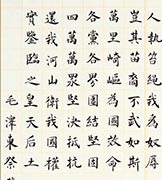 人執笞繩我為奴辱
豈其苗裔不武如斯
萬里崎嶇為國效命
各黨各界團結堅固
四萬萬眾堅決抵抗
還我河山衛我國權
實鑒臨之皇天后土
毛澤東祭